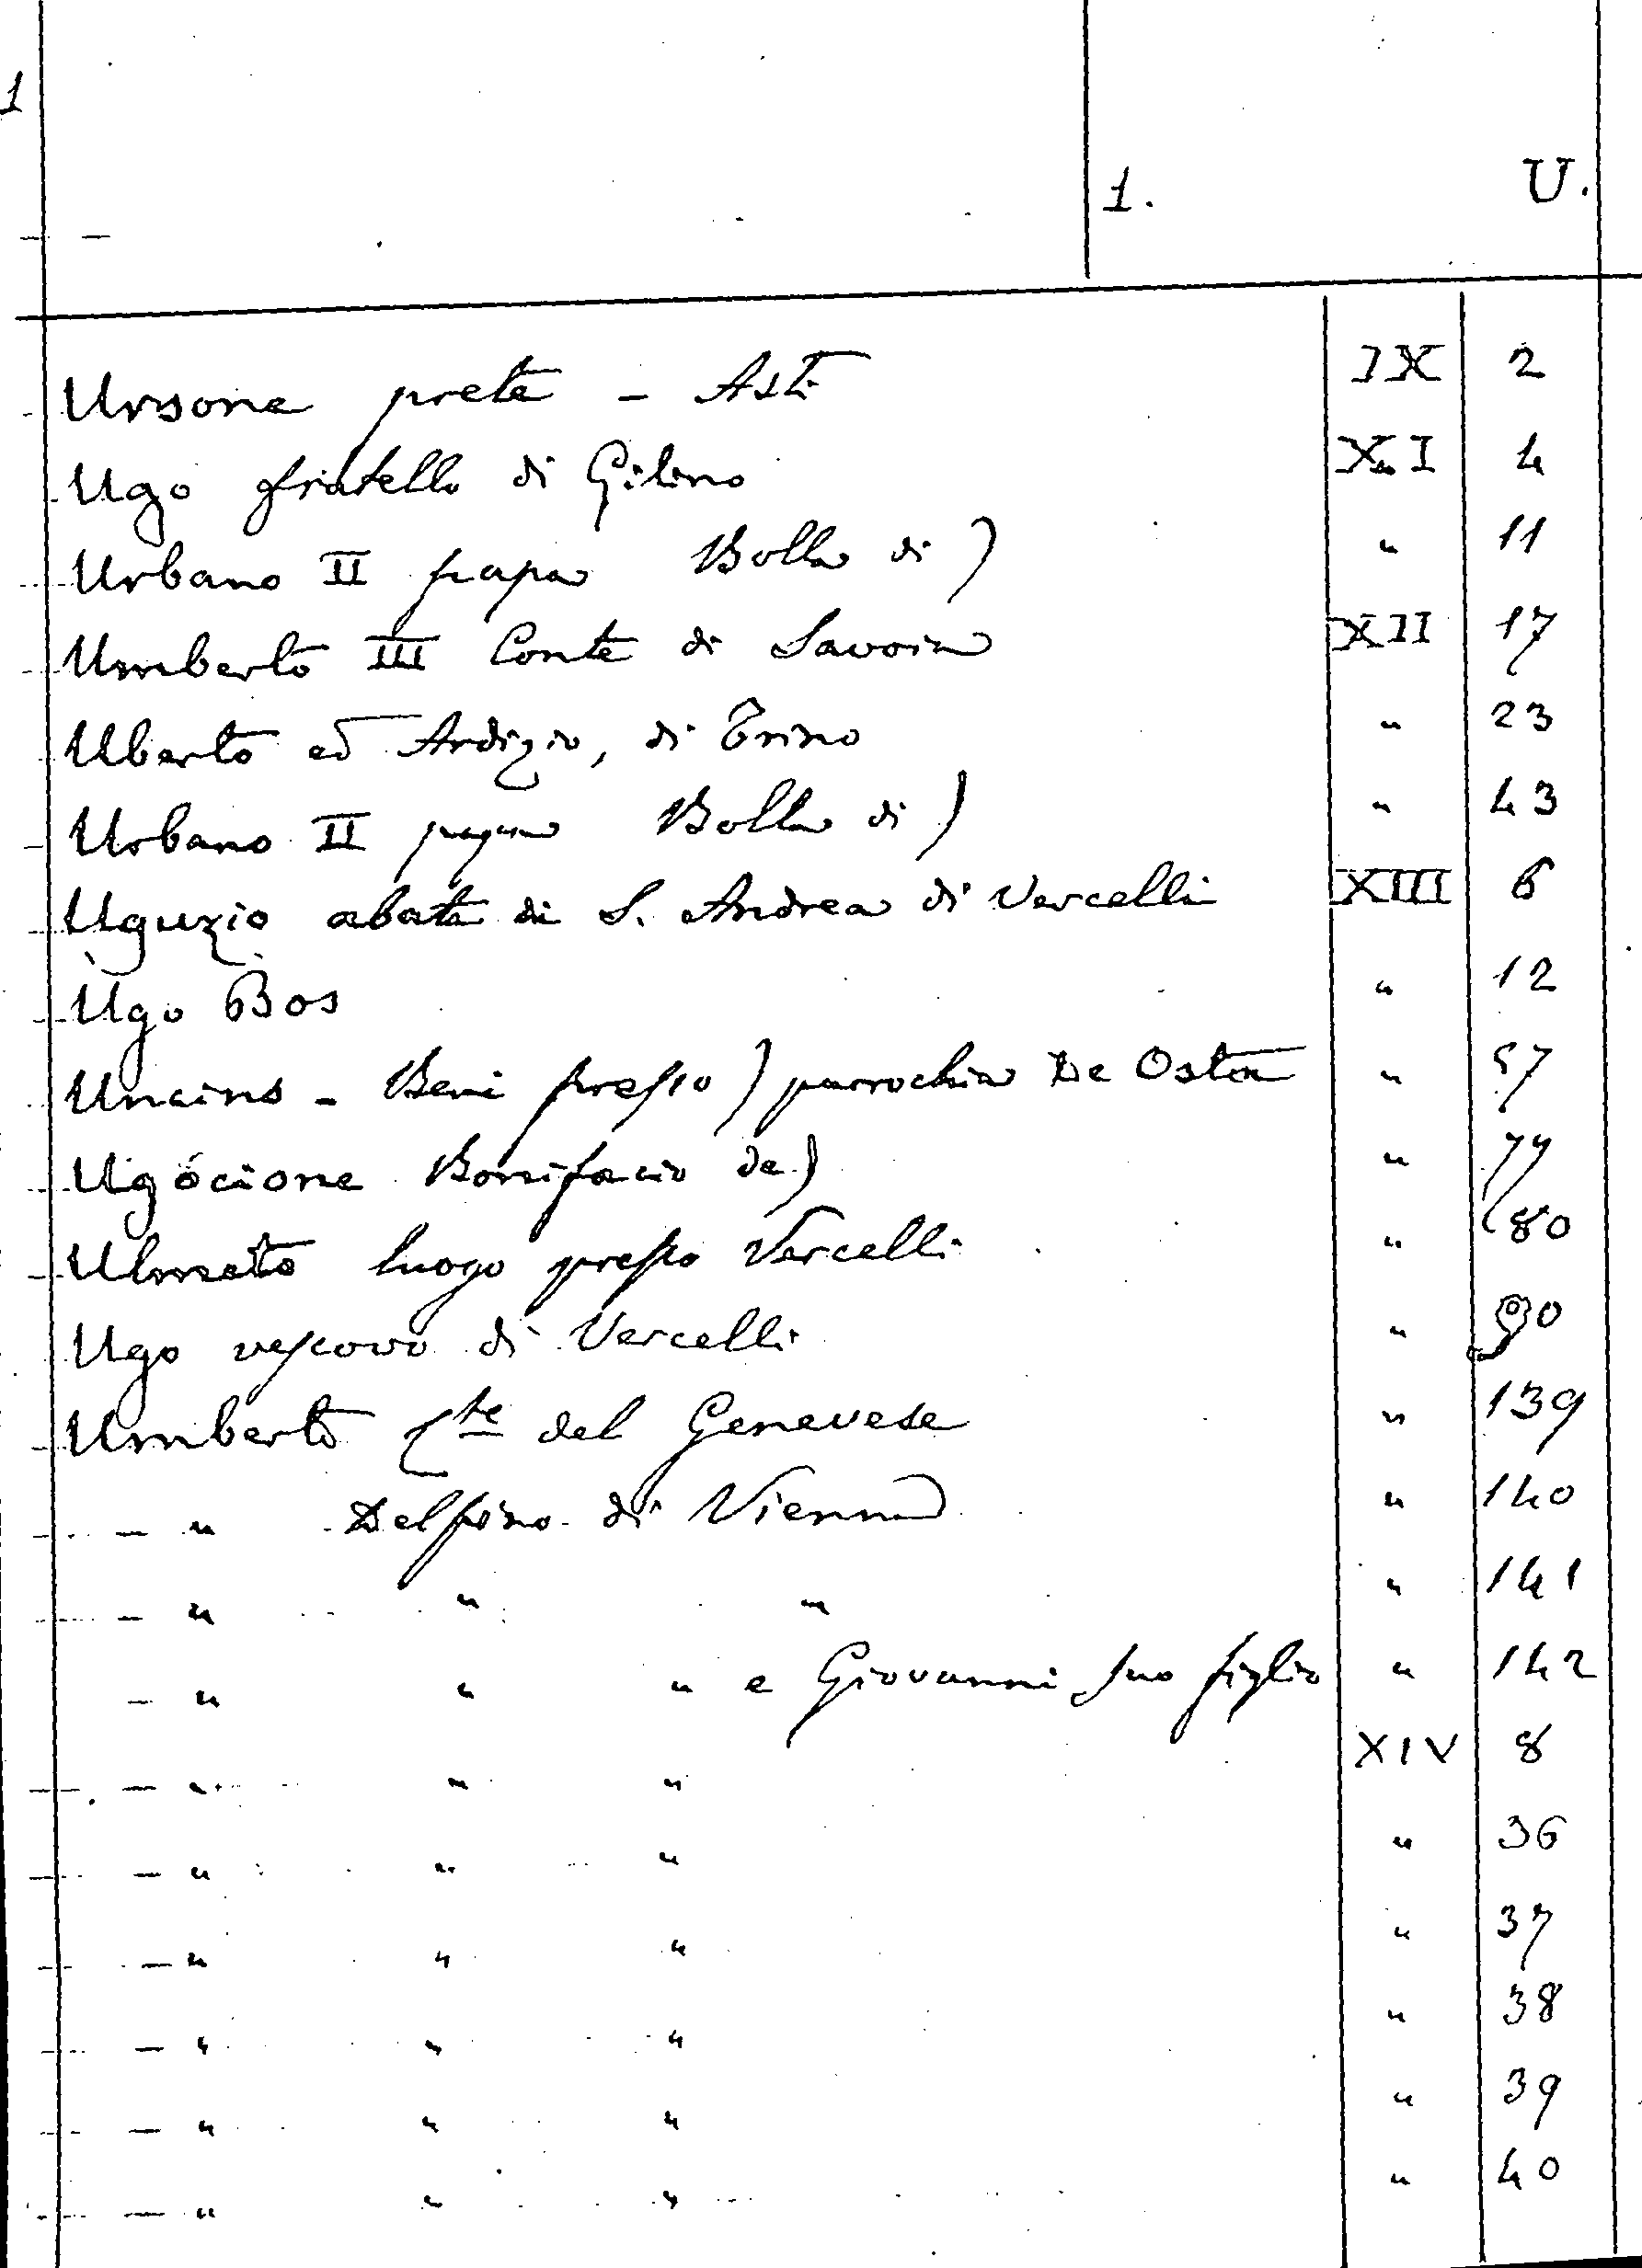 1
1. U.
Ursone prete - Asti IX 2
Ugo fratello di Gilino XI 4
Urbano II papa Bolla di) " 11
Umberto III Conte di Savoia XII 17
Uberto ed Ardizio, di Trino " 23
Urbano II papa Bolla di) " 43
Uguzio abate di S. Andrea di Vercelli XIII 6
Ugo Bos " 12
Uncino - Beni presso) parrochia De Osten " 57
Ugócione Bonifacio de) " 77
Ulmeto luogo presso Vercelli " 80
Ugo vescovo di Vercelli " 90
Umberto Cte del Genevese " 139
- " Delfino di Vienna " 140
- " " " " 141
- " " " e Giovanni suo figlio " 142
- " " " XIV 8
- " " " " 36
- " " " " 37
- " " " " 38
- " " " " 39
- " " " " 40